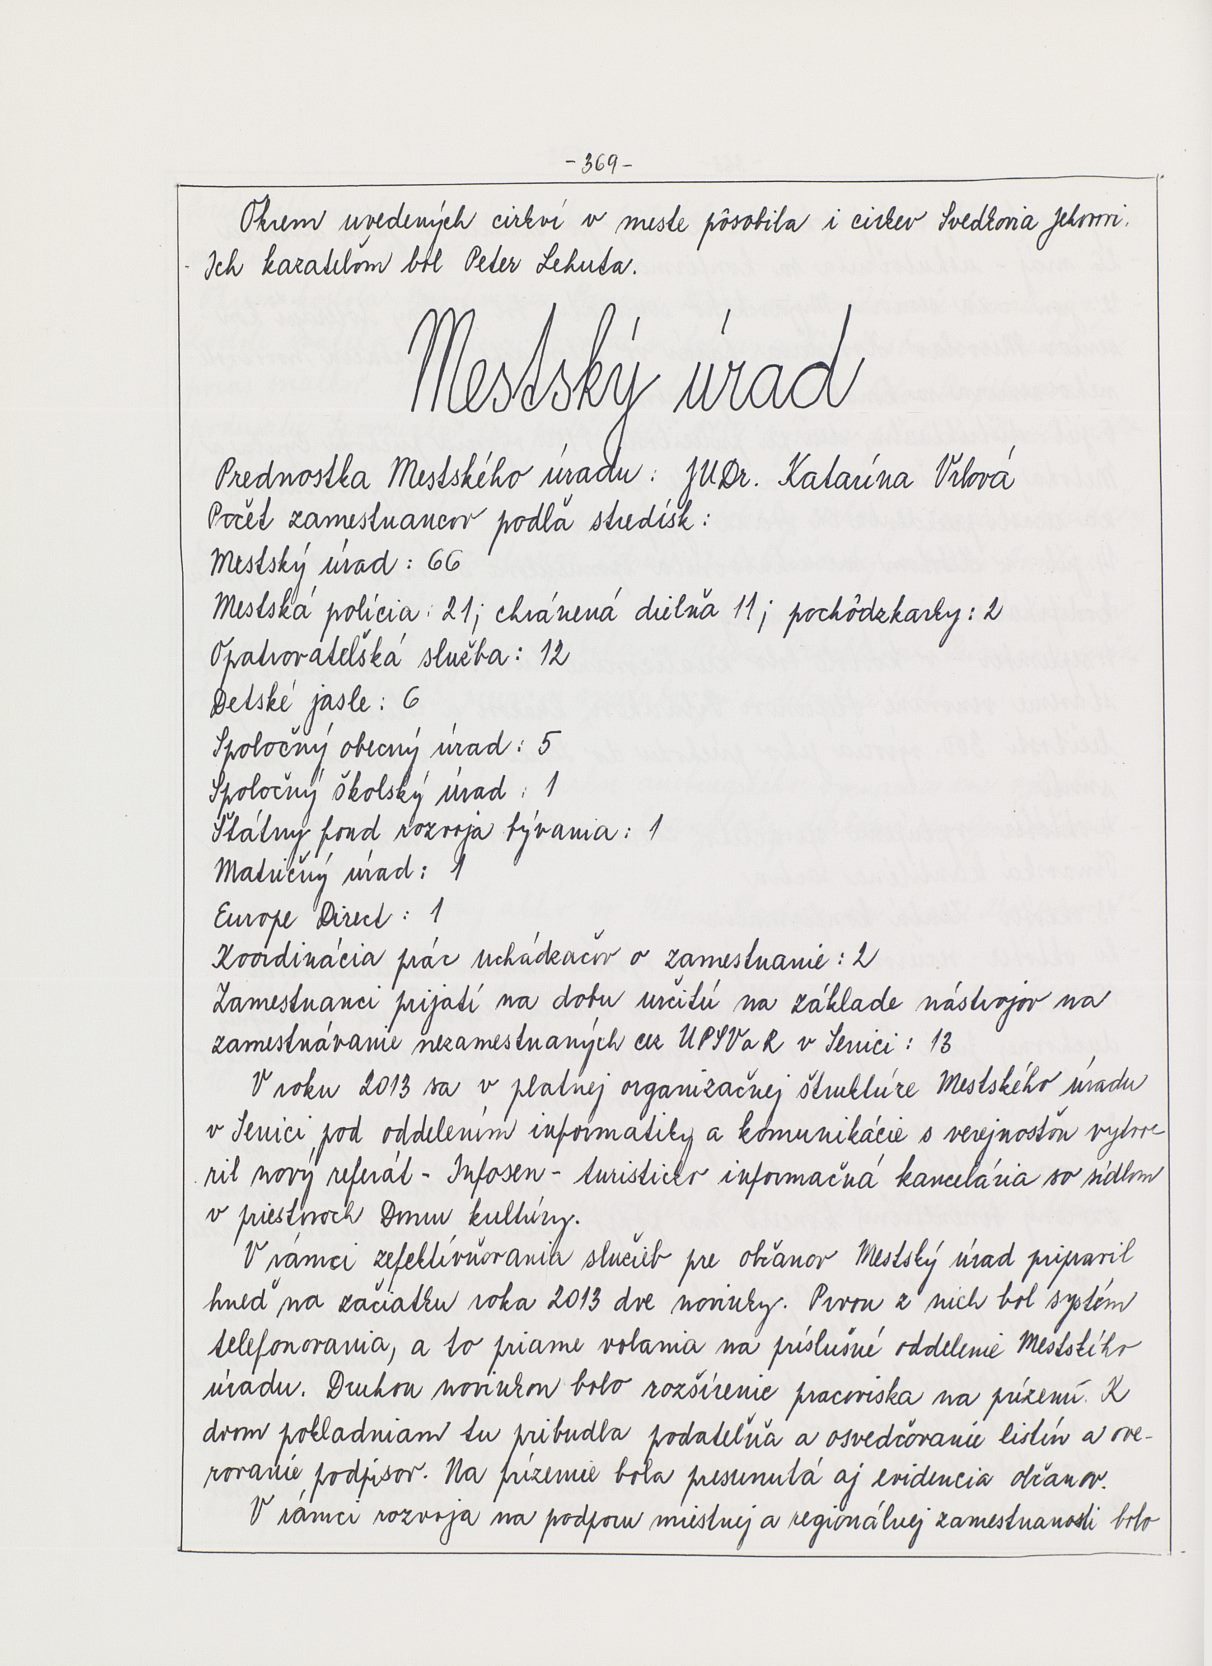 -369-
Okrem uvedených cirkví v meste pôsobila i cirkev Svedkovia Jehovovi.
Ich kazateľom bol Peter Lehuta.
Mestský úrad
Prednostka Mestského úradu: JUDr. Katarína Vrlová
Počet zamestnancov podľa stredísk:
Mestský úrad: 66
Mestská polícia: 21; chránená dielňa 11; pochôdzkarky: 2
Opatrovateľská služba: 12
Detské jasle: 6
Spoločný obecný úrad: 5
Spoločný školský úrad: 1
Štátny fond rozvoja bývania: 1
Matričný úrad: 1
Europe Direct: 1
Koordinácia prác uchádzačov o zamestnanie: 2
Zamestnanci prijatí na dobu určitú na základe nástrojov na
zamestnávanie nezamestnaných cez UPSVaR v Senici: 13
V roku 2013 sa v platnej organizačnej štruktúre Mestského úradu
v Senici pod oddelením informatiky a komunikácie s verejnosťou vytvo-
ril nový referát - Infosen - turisticko informačná kancelária so sídlom
v priestoroch Domu kultúry.
V rámci zefektívňovania služieb pre občanov Mestský úrad pripravil
hneď na začiatku roka 2013 dve novinky. Prvou z nich bol systém
telefonovania, a to priame volania na príslušné oddelenie Mestského
úradu. Druhou novinkou bolo rozšírenie pracoviska na prízemí. K
dvom pokladniam tu pribudla podateľňa a osvedčovanie listín a ove-
rovanie podpisov. Na prízemie bola presunutá aj evidencia občanov.
V rámci rozvoja na podporu miestnej a regionálnej zamestnanosti bolo